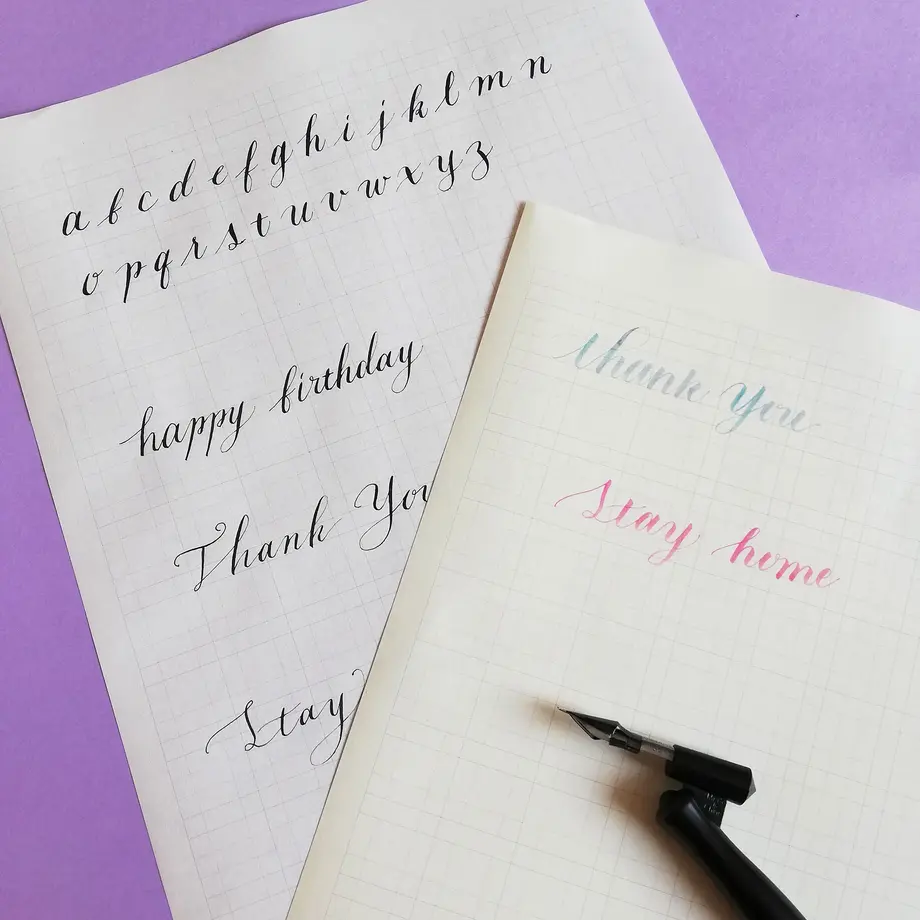 a b c d e f g h i j k l m n
o p q r s t u v w x y z
happy birthday
Thank You
Stay
thank You
Stay home